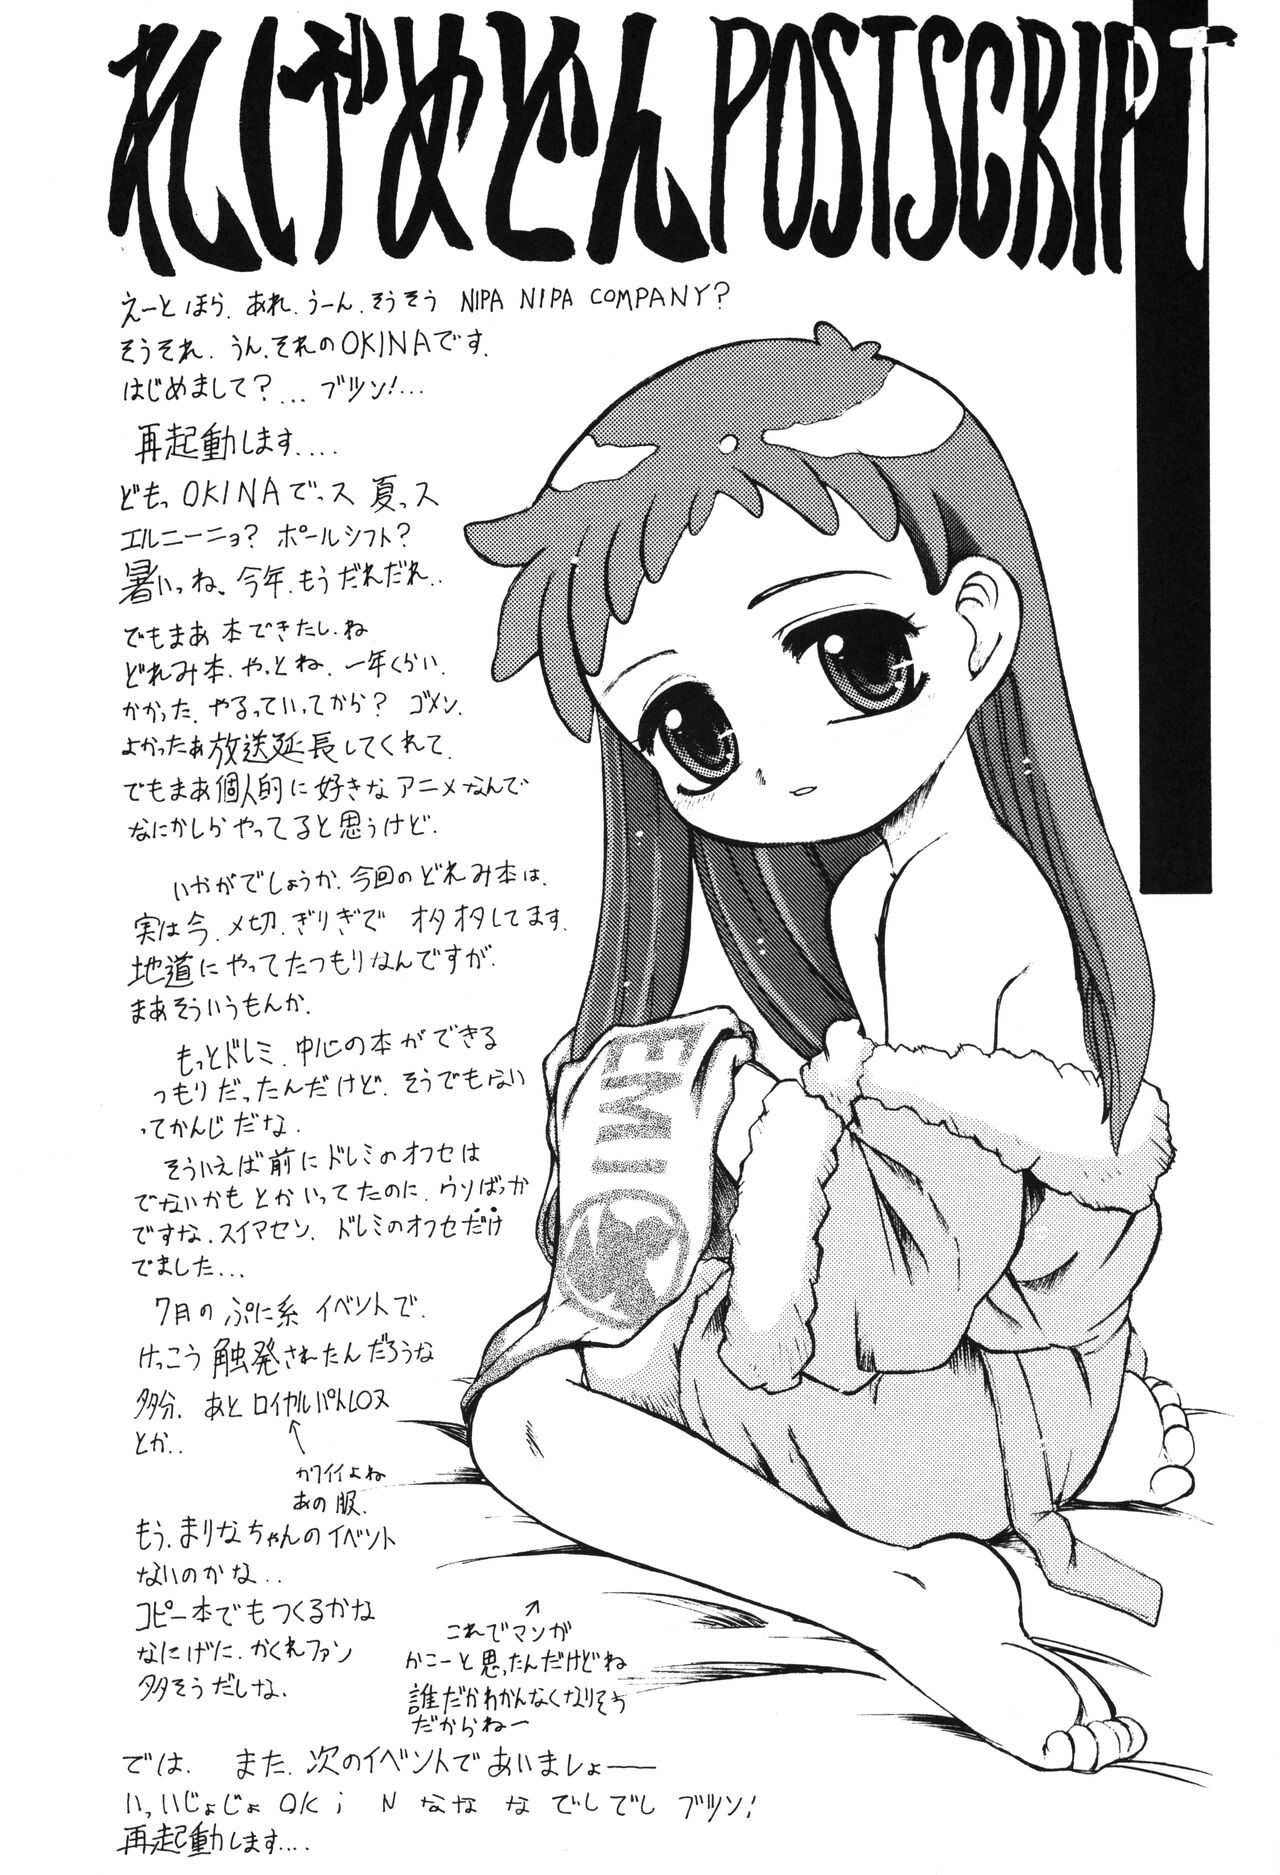 れしげめどん POSTSCRIPT
えーと ほら、あれ、うーん、そうそう NIPA NIPA COMPANY?
そうそれ、うん、それのOKINAです。
はじめまして?... ブツン!...
再起動します....
どもっ OKINAでっス 夏っス
エルニーニョ? ポールシフト?
暑いっね。今年、もうだれだれ..
でもまあ 本できたし、ね
どれみ本、やっとね、一年くらい、
かかった、やるっていってから? ゴメン、
よかったぁ放送延長してくれて、
でもまあ個人的に好きなアニメなんで
なにかしらやってると思うけど、
いかがでしょうか、今回のどれみ本は、
実は今、〆切、ぎりぎで オタオタしてます、
地道にやってたつもりなんですが、
まあそういうもんか、
もっとドレミ、中心の本ができる
つもりだったんだけど、そうでもない
ってかんじだな、
そういえば前にドレミのオフセは
でないかもとかいってたのに、ウソばっか
ですな、スイマセン、ドレミのオフセだけ
でました...
7月の ぷに系 イベントで、
けっこう触発されたんだろうな
多分、あと ロイヤルパトレーヌ
とか..
カワイイよね
あの服、
もう、まりなちゃんのイベント
ないのかな..
コピー本でもつくるかな
なにげに、かくれファン
多そうだしな、
これでマンガ
かこーと思ったんだけどね
誰だかわかんなくなりそう
だからねー
では、 また、次のイベントであいましょー
いっいじょじょ OKi N ななな でしでし ブツン!
再起動します....
EMI